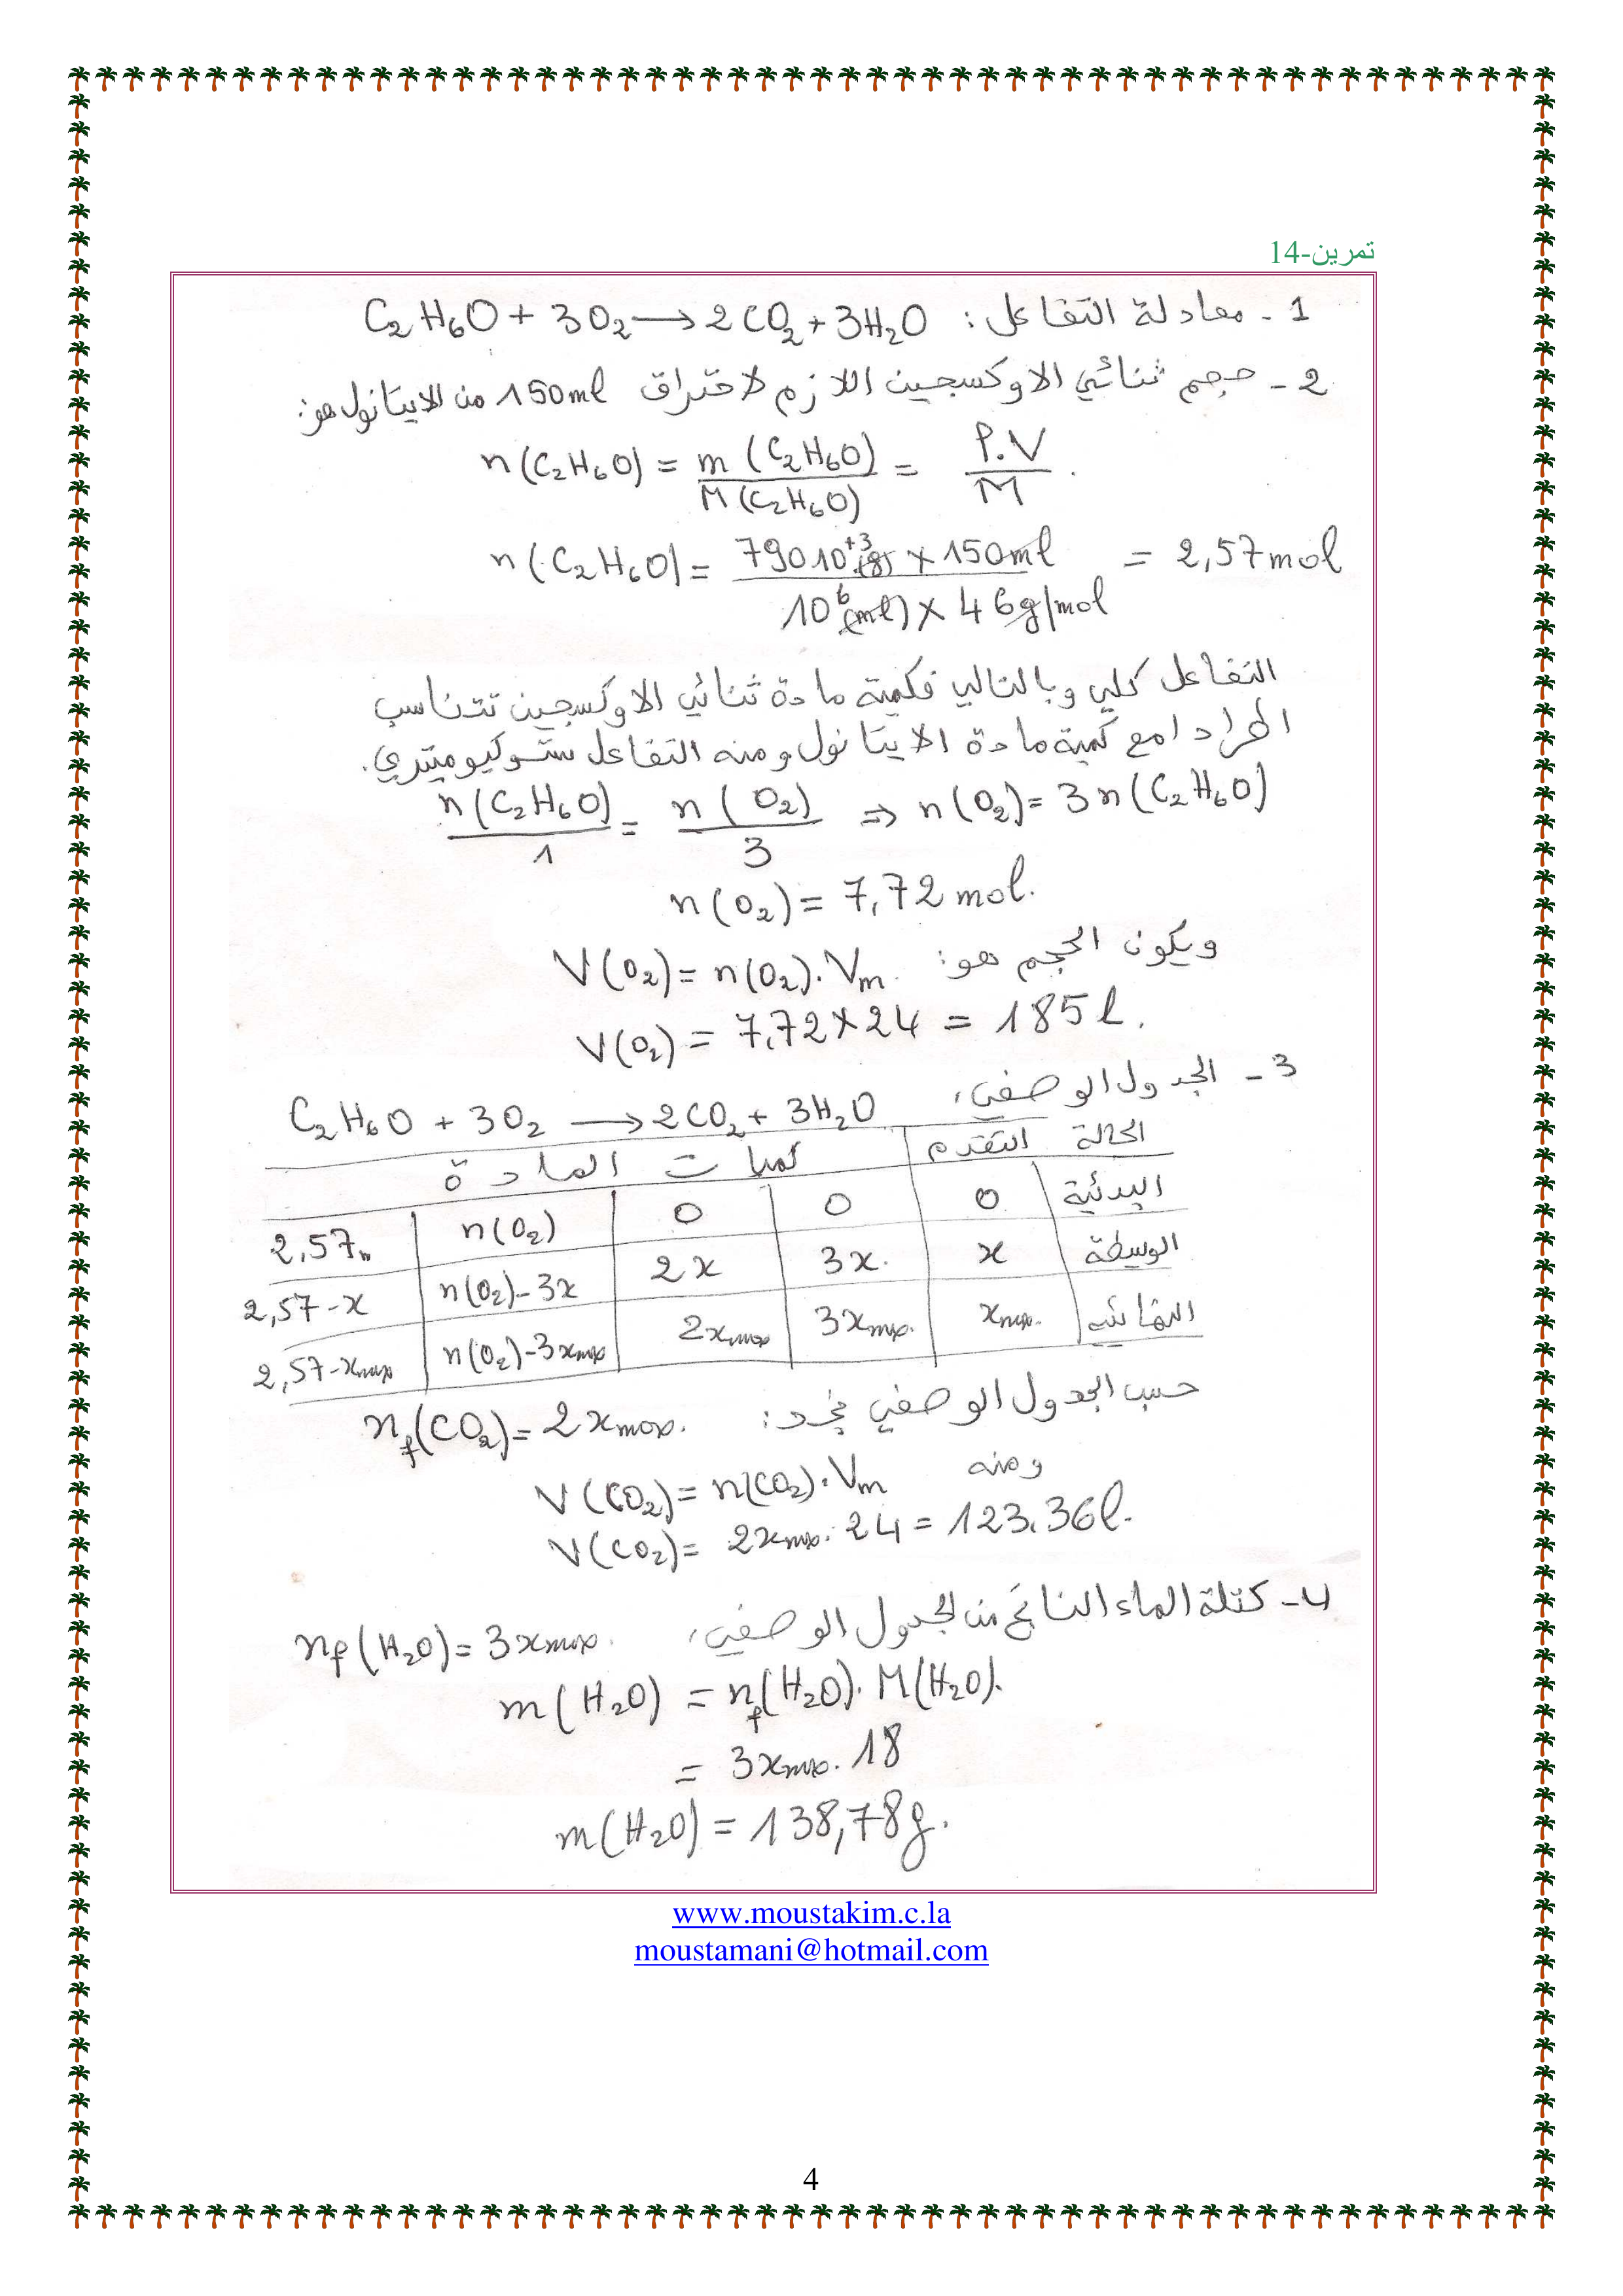 تمرين-14
1 - معادلة التفاعل : C₂H₆O + 3O₂ → 2CO₂ + 3H₂O
2 - حجم ثنائي الاوكسجين اللازم لاحتراق 150ml من الايتانول هو:
n(C₂H₆O) = m(C₂H₆O) / M(C₂H₆O) = ρ.V / M .
n(C₂H₆O) = 790 10⁺³(g) × 150ml / 10⁶(ml) × 46g/mol = 2,57mol
التفاعل كلي وبالتالي فكمية مادة ثنائي الاوكسجين تتناسب
اطرادا مع كمية مادة الايتانول ومنه التفاعل ستوكيوميتري.
n(C₂H₆O) / 1 = n(O₂) / 3 ⇒ n(O₂) = 3n(C₂H₆O)
n(O₂) = 7,72 mol.
ويكون الحجم هو: V(O₂) = n(O₂).Vm.
V(O₂) = 7,72 × 24 = 185 l.
3 - الجدول الوصفي،
C₂H₆O + 3O₂ → 2CO₂ + 3H₂O
الحالة التقدم كميات المادة
البدئية 0 0 0 n(O₂) 2,57
الوسطية x 3x. 2x n(O₂)-3x 2,57-x
xmax. 3xmax. 2xmax n(O₂)-3xmax 2,57-xmax
حسب الجدول الوصفي نجد: nf(CO₂) = 2xmax.
ومنه V(CO₂) = n(CO₂).Vm
V(CO₂) = 2xmax. 24 = 123.36l.
4 - كتلة الماء الناتج من الجدول الوصفي، nf(H₂O) = 3xmax.
m(H₂O) = nf(H₂O). M(H₂O).
= 3xmax. 18
m(H₂O) = 138,78g.
www.moustakim.c.la
moustamani@hotmail.com
4